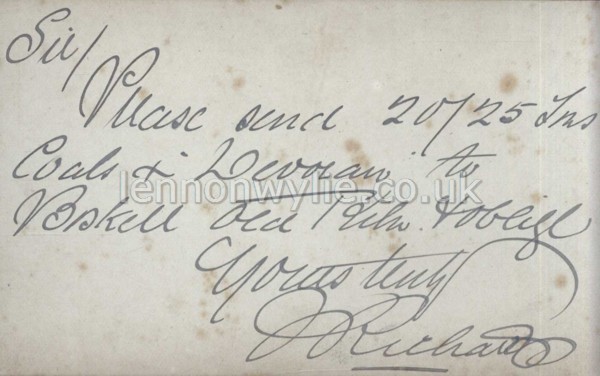 Sir/
Please send 20/25 Tns
Coals & "Devoran" to
lennonwylie.co.uk
Old & oblige
Yours truly
J Richards